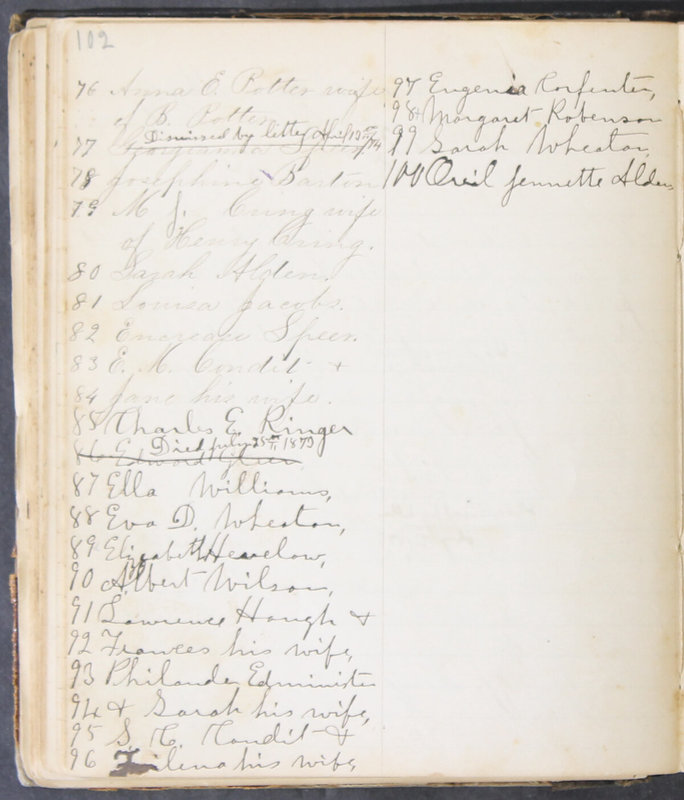 102
76 Anna E. Potter wife
of B. Potter
Dismissed by letter April 13th /74
77
78 Josephine Barton
79 M J. Cring wife
of Henry Cring.
80 Sarah Alden.
81 Louisa Jacobs.
82 Encrease Speer.
83 E. M. Condit +
84 Jane his wife.
85 Charles E. Ringer
Died July 25th 1873
86 Edward
87 Ella Williams,
88 Eva D. Wheaton,
89 Elizabeth Hevelow,
90 Albert Wilson,
91 Lawrence Hough &
92 Frances his wife,
93 Philander Edminister
94 & Sarah his wife,
95 S. C. Condit &
96 his wife,
97 Eugenia Corpenter,
98 Margaret Robenson
99 Sarah Wheaton,
100 Orcil Jennette Alden,